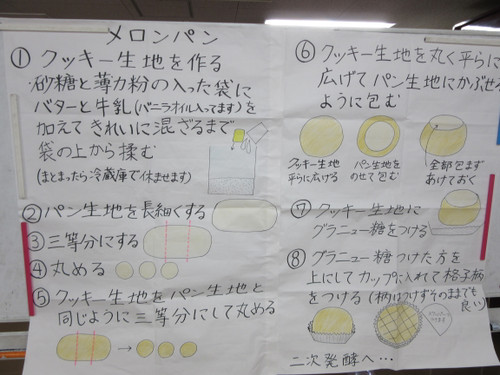 メロンパン
① クッキー生地を作る
砂糖と薄力粉の入った袋に
バターと牛乳(バニラオイル入ってます)を
加えてきれいに混ざるまで
袋の上から揉む
(まとまったら冷蔵庫で休ませます)
② パン生地を長細くする
③ 三等分にする
④ 丸める
⑤ クッキー生地をパン生地と
同じように三等分にして丸める
⑥ クッキー生地を丸く平らに
広げてパン生地にかぶせる
ように包む
クッキー生地
平らに広げる
パン生地を
のせて包む
全部包まず
あけておく
⑦ クッキー生地に
グラニュー糖をつける
⑧ グラニュー糖つけた方を
上にしてカップに入れて格子柄
をつける(柄はつけずそのままでも
良い)
二次発酵へ…